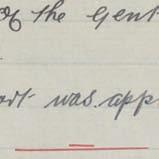 of the Gent
ort was app